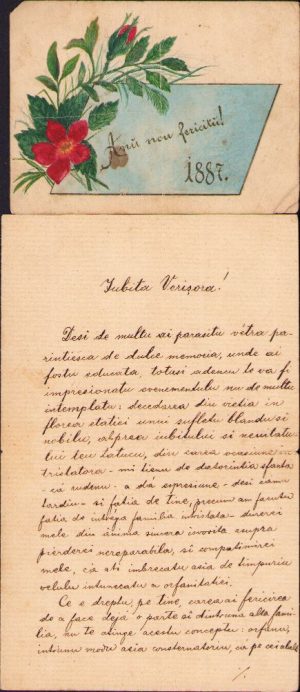 Anu nou fericitu!
1887.
Iubita Verișora!
Desi de multu ai parasitu vétra pa-
rintiésca de dulce memoria, unde ai
fostu educata, totusi adencu te va fi
impresionatu evenementulu nu de multu
intemplatu: decedarea din viétia in
flórea etatii unui sufletu blandu si
nobilu, alu prea iubitului si neuitatu-
lui teu tatucu, din carea ocasiune in-
tristatóra - mi tienu de datorintia sfanta
- că rudenu - a dá espresiune - desi camu
tardiu - si fatia de tine, precum am facutu
fatia de intréga familia intristata - durerei
mele din inima sincera ivorita asupra
pierderei nereparabila, si compatimirei
mele, că ati imbracatu asia de timpuriu
velulu intunecatu a orfanitatei.
Ce e dreptu, pe tine, carea ai fericirea
de a face dejá o parte si dintruna alta fami-
lia, nu te atinge acestu conceptu: orfanu,
intrunu modu asia consternatoriu, că pe ceialalti
./.